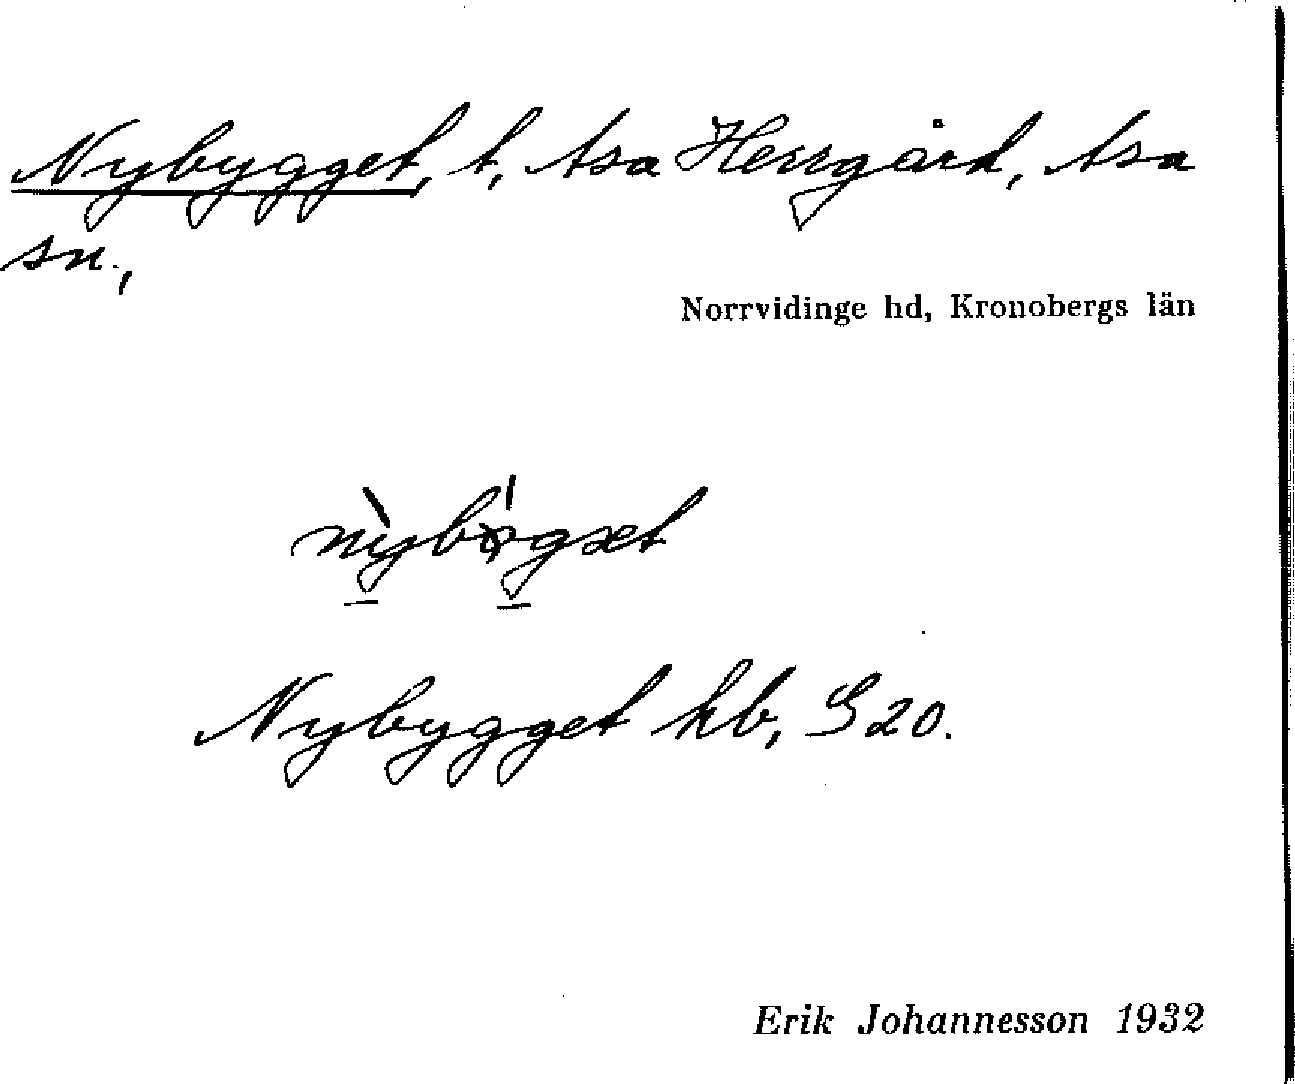 Nybygget, t, Asa Herrgård, Asa
sn.,
Norrvidinge hd, Kronobergs län
Nybygget kb, S 20.
Erik Johannesson 1932